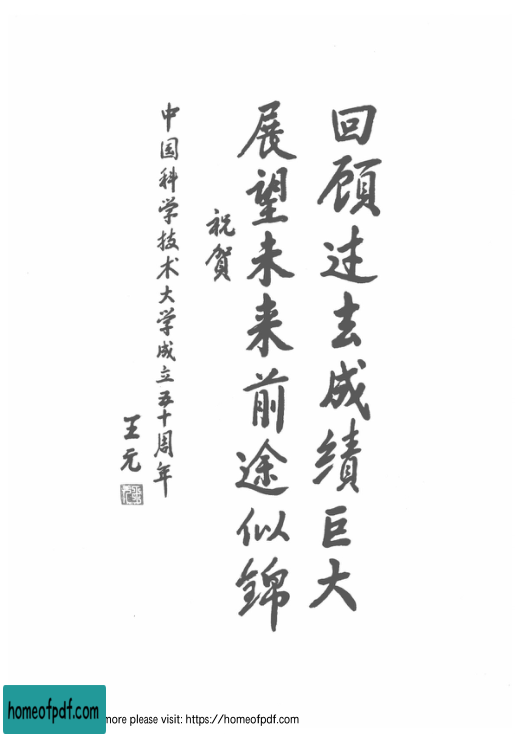 回顾过去成绩巨大
展望未来前途似锦
祝贺
中国科学技术大学成立五十周年
王元
homeofpdf.com
more please visit: https://homeofpdf.com